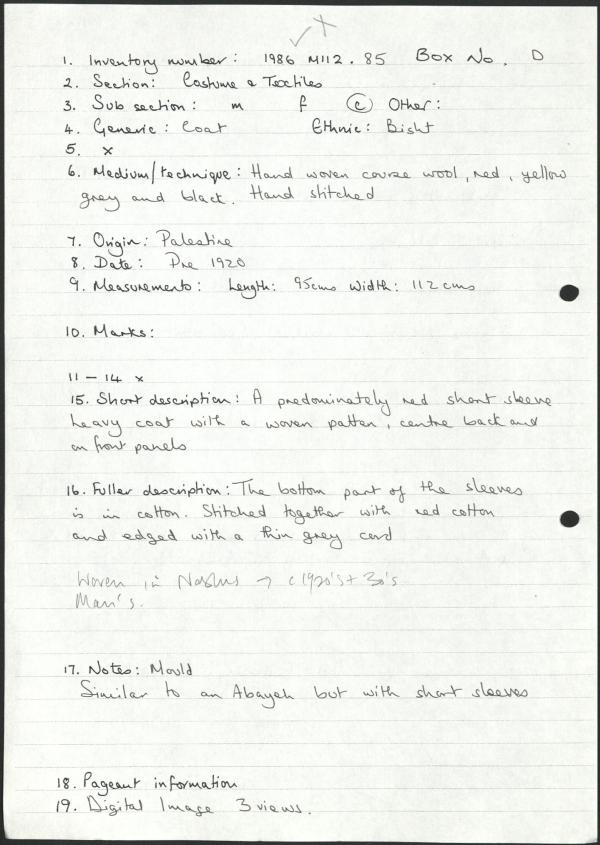 1. Inventory number: 1986 M112.85 Box No. D
2. Section: Costume & Textiles
3. Sub section: m f (c) Other:
4. Generic: Coat Ethnic: Bisht
5. x
6. Medium/technique: Hand woven course wool, red, yellow
grey and black. Hand stitched
7. Origin: Palestine
8. Date: Pre 1920
9. Measurements: Length: 95cms Width: 112 cms
10. Marks:
11 – 14 x
15. Short description: A predominately red short sleeve
heavy coat with a woven patten, centre back and
on front panels
16. Fuller description: The bottom part of the sleeves
is in cotton. Stitched together with red cotton
and edged with a thin grey cord
Woven in Nablus → c1920's + 30's
Man's.
17. Notes: Mould
Similar to an Abayeh but with short sleeves
18. Pageant information
19. Digital Image 3 views.